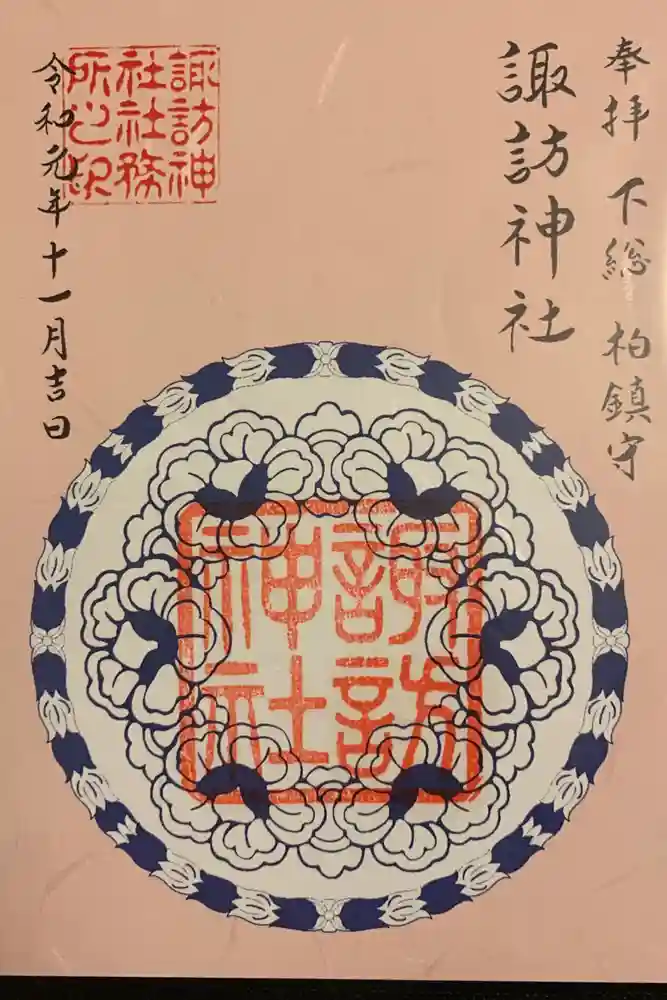 奉拝 下総 柏鎮守
諏訪神社
令和元年十一月吉日
諏訪神
社社務
所之印
諏訪
神社